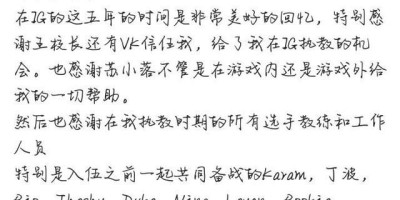 在IG的这五年的时间是非常美好的回忆，特别感
谢王校长还有VK信任我，给了我在IG执教的机
会。也感谢苏小落不管是在游戏内还是游戏外给
我的一切帮助。
然后也感谢在我执教时期的所有选手教练和工作
人员
特别是入伍之前一起共同备战的Karam，丁波，
Rio，Theshy，Duke，Ning，Leyan，Rookie